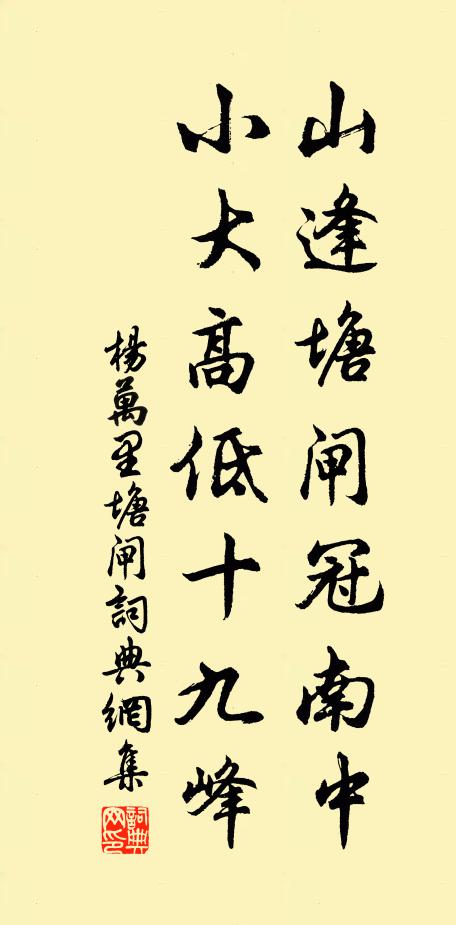 山逢塘閘冠南中
小大高低十九峰
楊萬里塘閘詞典網集
詞典网印